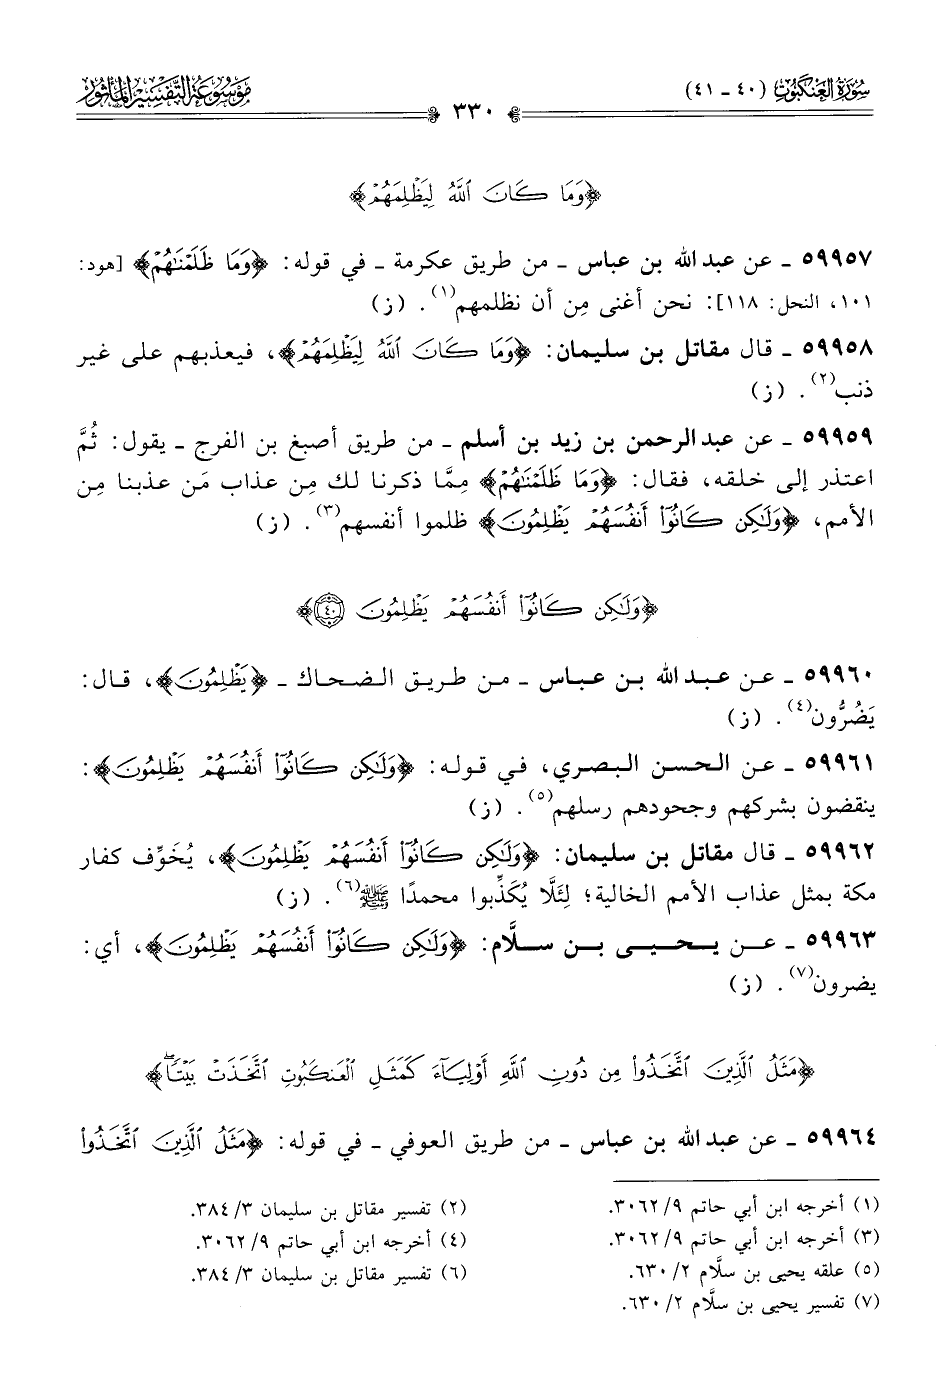 سُورَةُ العَنكَبُوتِ (٤٠ - ٤١)
٣٣٠
مَوْسُوعَةُ التَّفْسِيرِ المَأْثُور
﴿وَمَا كَانَ ٱللَّهُ لِيَظْلِمَهُمْ﴾
٥٩٩٥٧ - عن عبد الله بن عباس - من طريق عكرمة - في قوله: ﴿وَمَا ظَلَمْنَٰهُمْ﴾ [هود:
١٠١، النحل: ١١٨]: نحن أغنى مِن أن نظلمهم(١). (ز)
٥٩٩٥٨ - قال مقاتل بن سليمان: ﴿وَمَا كَانَ ٱللَّهُ لِيَظْلِمَهُمْ﴾، فيعذبهم على غير
ذنب(٢). (ز)
٥٩٩٥٩ - عن عبد الرحمن بن زيد بن أسلم - من طريق أصبغ بن الفرج - يقول: ثُمَّ
اعتذر إلى خلقه، فقال: ﴿وَمَا ظَلَمْنَٰهُمْ﴾ مِمَّا ذكرنا لك مِن عذاب مَن عذبنا مِن
الأمم، ﴿وَلَٰكِن كَانُوٓا۟ أَنفُسَهُمْ يَظْلِمُونَ﴾ ظلموا أنفسهم(٣). (ز)
﴿وَلَٰكِن كَانُوٓا۟ أَنفُسَهُمْ يَظْلِمُونَ ٤٠﴾
٥٩٩٦٠ - عن عبد الله بن عباس - من طريق الضحاك - ﴿يَظْلِمُونَ﴾، قال:
يَضُرُّون(٤). (ز)
٥٩٩٦١ - عن الحسن البصري، في قوله: ﴿وَلَٰكِن كَانُوٓا۟ أَنفُسَهُمْ يَظْلِمُونَ﴾:
ينقضون بشركهم وجحودهم رسلهم(٥). (ز)
٥٩٩٦٢ - قال مقاتل بن سليمان: ﴿وَلَٰكِن كَانُوٓا۟ أَنفُسَهُمْ يَظْلِمُونَ﴾، يُخَوِّف كفار
مكة بمثل عذاب الأمم الخالية؛ لِئَلَّا يُكَذِّبوا محمدًا ﷺ(٦). (ز)
٥٩٩٦٣ - عن يحيى بن سلَّام: ﴿وَلَٰكِن كَانُوٓا۟ أَنفُسَهُمْ يَظْلِمُونَ﴾، أي:
يضرون(٧). (ز)
﴿مَثَلُ ٱلَّذِينَ ٱتَّخَذُوا۟ مِن دُونِ ٱللَّهِ أَوْلِيَآءَ كَمَثَلِ ٱلْعَنكَبُوتِ ٱتَّخَذَتْ بَيْتًۭا ۖ﴾
٥٩٩٦٤ - عن عبد الله بن عباس - من طريق العوفي - في قوله: ﴿مَثَلُ ٱلَّذِينَ ٱتَّخَذُوا۟
(١) أخرجه ابن أبي حاتم ٩/ ٣٠٦٢.
(٢) تفسير مقاتل بن سليمان ٣/ ٣٨٤.
(٣) أخرجه ابن أبي حاتم ٩/ ٣٠٦٢.
(٤) أخرجه ابن أبي حاتم ٩/ ٣٠٦٢.
(٥) علقه يحيى بن سلَّام ٢/ ٦٣٠.
(٦) تفسير مقاتل بن سليمان ٣/ ٣٨٤.
(٧) تفسير يحيى بن سلَّام ٢/ ٦٣٠.